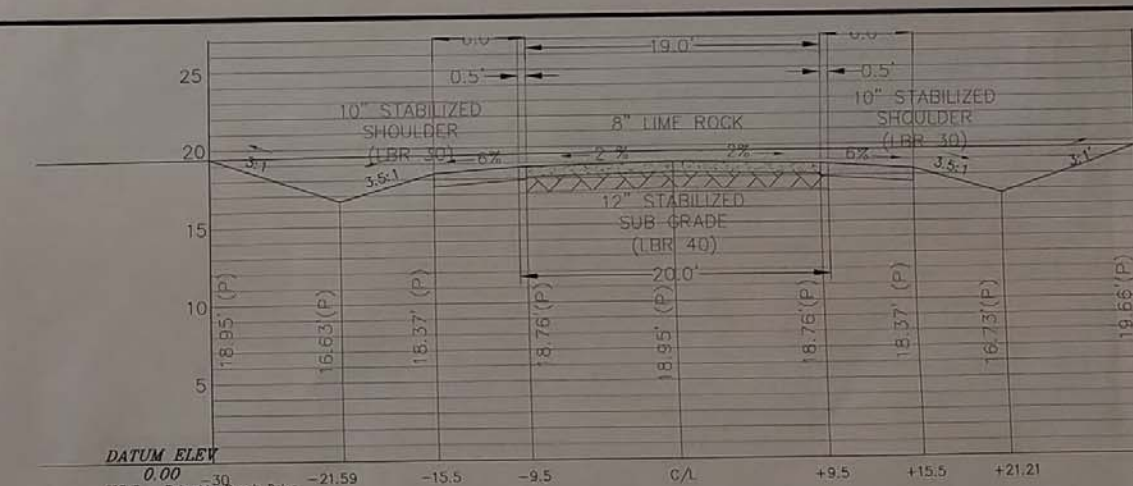 19.0'
0.5'
0.5'
25
10" STABILIZED
SHOULDER
(LBR 30)
8" LIME ROCK
10" STABILIZED
SHOULDER
(LBR 30)
20
3:1
3.5:1
6%
2 %
2%
6%
3.5:1
3:1
12" STABILIZED
SUB GRADE
(LBR 40)
15
20.0'
10
18.95' (P)
16.63'(P)
18.37' (P)
18.76'(P)
18.95' (P)
18.76'(P)
18.37' (P)
16.73'(P)
19.66'(P)
5
DATUM ELEV
0.00
-30
-21.59
-15.5
-9.5
C/L
+9.5
+15.5
+21.21